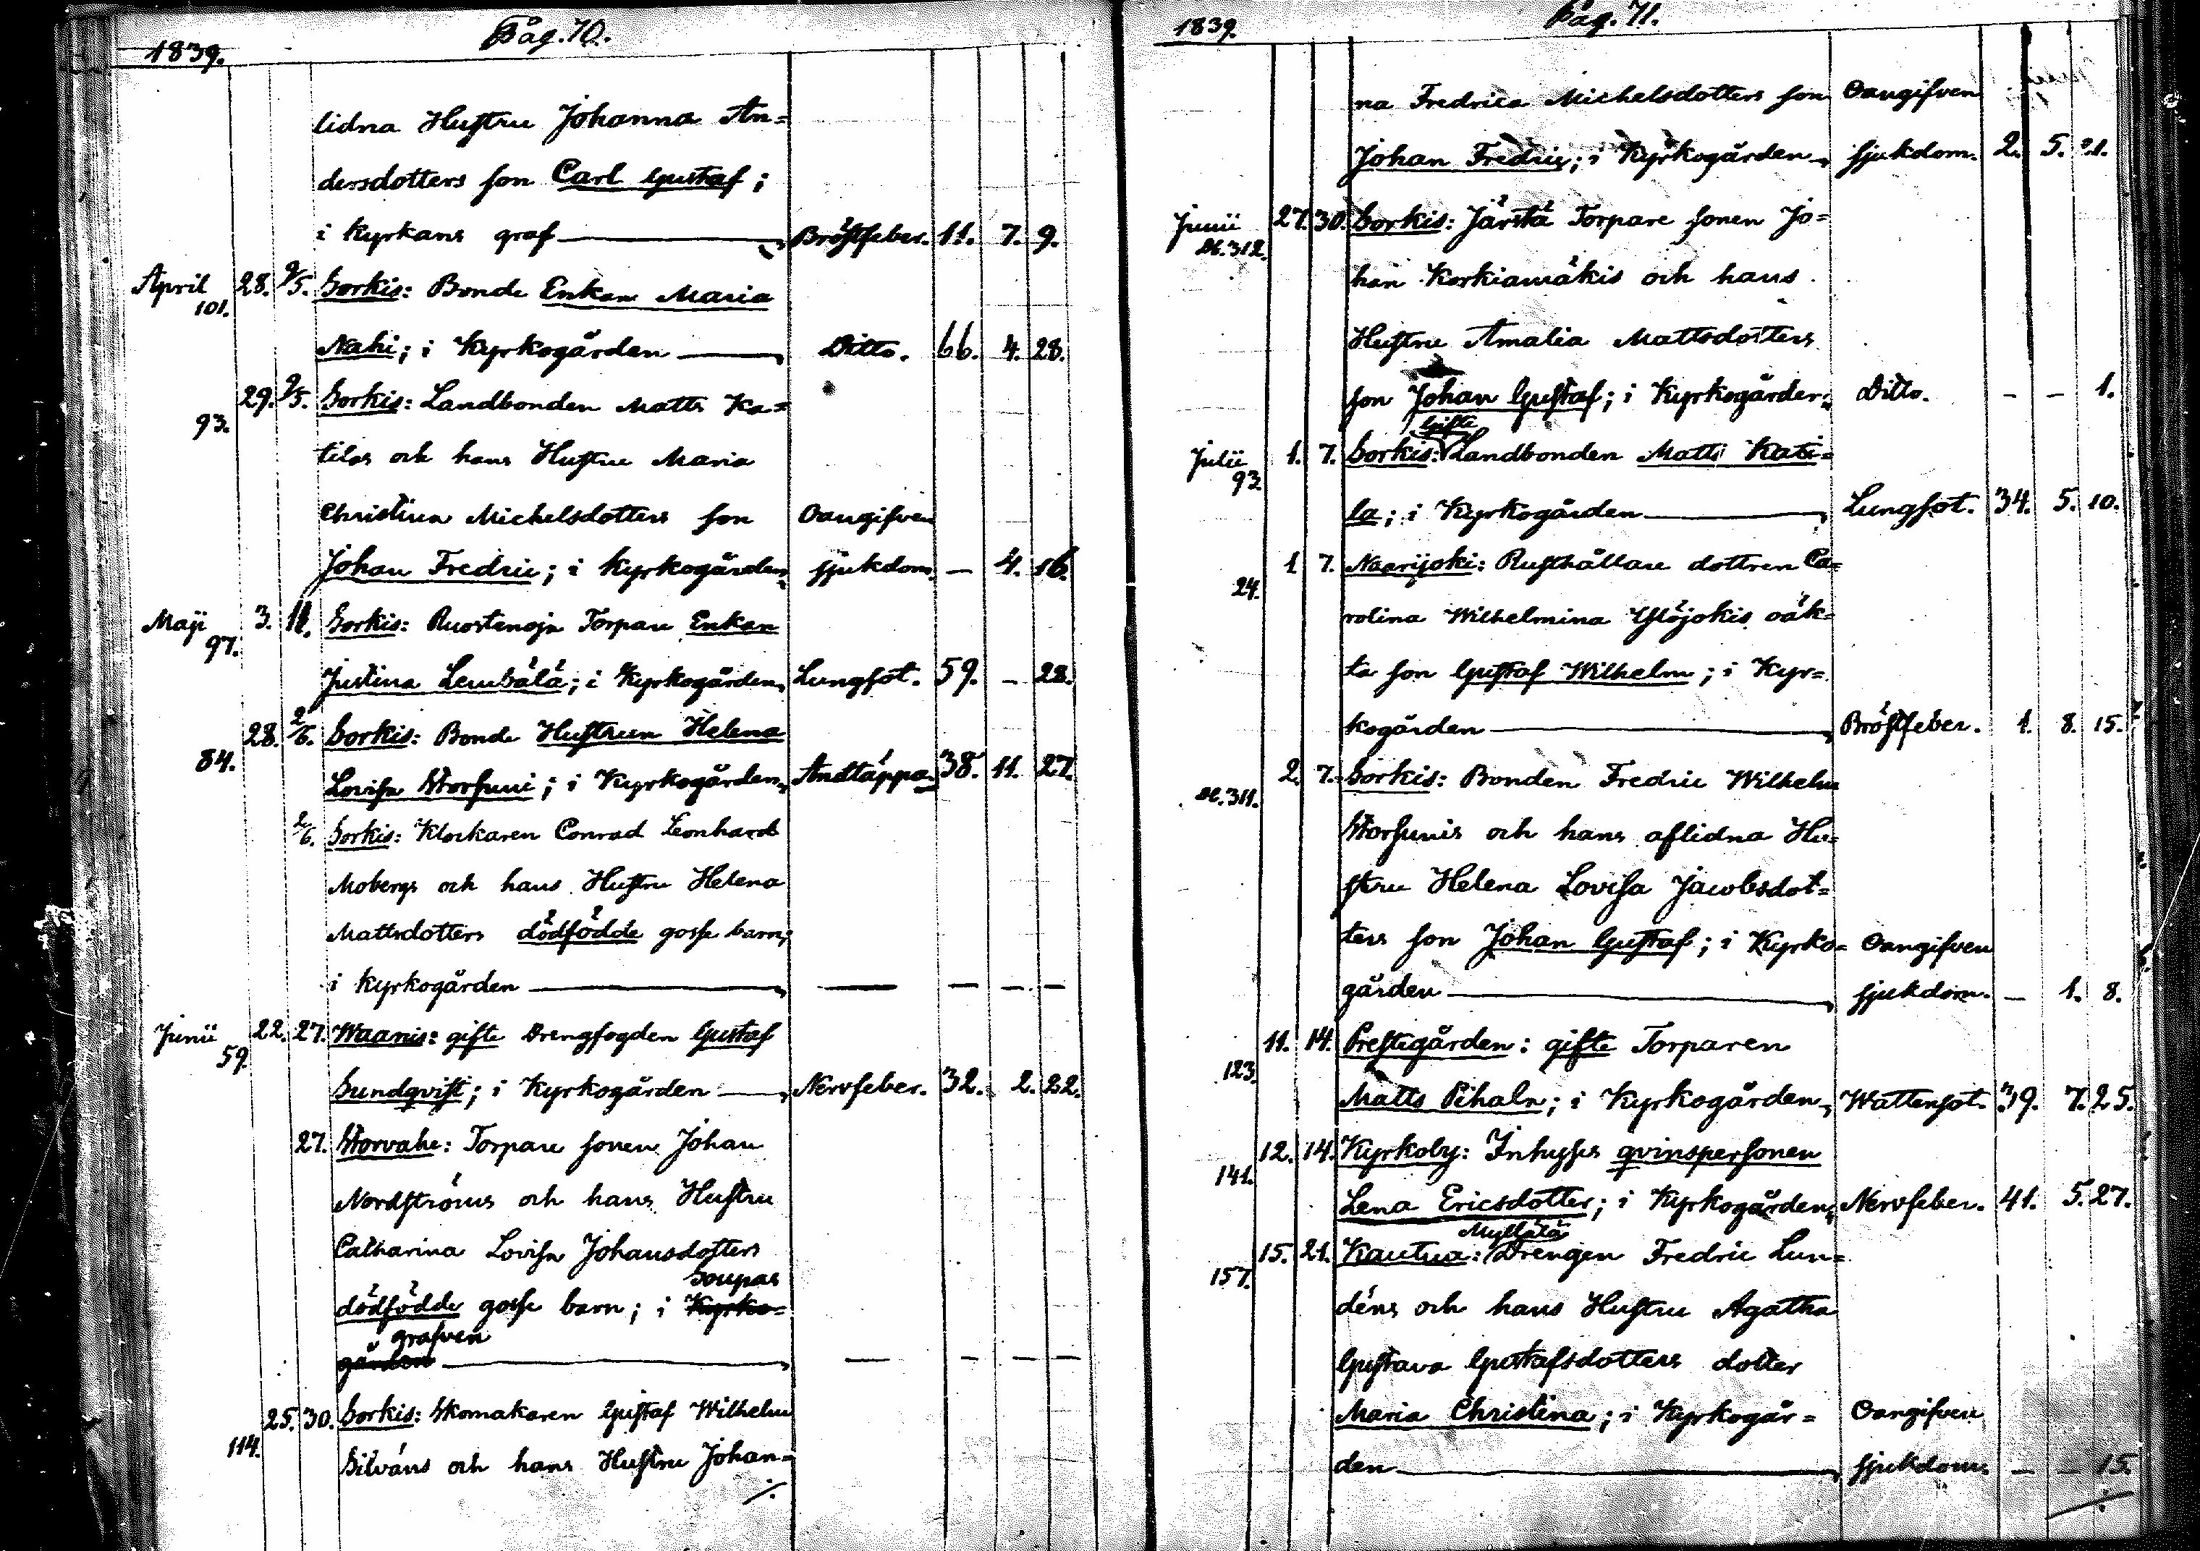 Pag. 70.
1839.
lidna Hustru Johanna An=
dersdotters son Carl Gustaf;
i Kyrkans graf — Bröstfeber. 11. 7. 9.
April 28. 9/5. Sorkis: Bonde Enkan Maria
101.
Nahi; i Kyrkogården — Ditto. 66. 4. 28.
29. 9/5. Sorkis: Landbonden Matts Ka=
93.
tilas och hans Hustru Maria
Christina Michelsdotters son Oangifven
Johan Fredric; i Kyrkogården, sjukdom. — 4. 16.
Maji 3. 11. Sorkis: Ruostenoja Torpare Enkan
97.
Justina Leusälä; i Kyrkogården, Lungsot. 59. — 28.
28. 2/6. Sorkis: Bonde Hustrun Helena
84.
Lovisa Storsuni; i Kyrkogården, Andtäppa. 38. 11. 27.
2/6. Sorkis: Klockaren Conrad Leonhard
Mobergs och hans Hustru Helena
Mattsdotters dödfödde gosse barn;
i Kyrkogården — — — — —
Junii 22. 27. Waanis: gifte Drengfogden Gustaf
59.
Sundqvist; i Kyrkogården — Nervfeber. 32. 2. 22.
27. Storvahe: Torpare sonen Johan
Nordströms och hans Hustru
Catharina Lovisa Johansdotters
Soupas
dödfödde gosse barn; i Kyrko=
grafven
gården — — — — —
25. 30. Sorkis: Skomakaren Gustaf Wilhelm
114.
Silváns och hans Hustru Johan=
Pag. 71.
1839.
na Fredrica Michelsdotters son Oangifven
Johan Fredric; i Kyrkogården, sjukdom. 2. 5. 21.
Junii 27. 30. Sorkis: Järstä Torpare sonen Jo=
312.
han Korkiamäkis och hans
Hustru Amalia Mattsdotters
son Johan Gustaf; i Kyrkogården, Ditto. — — 1.
Gifte
Julii 1. 7. Sorkis: Landbonden Matts Kati=
93.
la; i Kyrkogården — Lungsot. 34. 5. 10.
1. 7. Naarijoki: Rusthållare dottren Ca=
24.
rolina Wilhelmina Ylöjokis oäk=
ta son Gustaf Wilhelm; i Kyr=
kogården — Bröstfeber. 1. 8. 15.
2. 7. Sorkis: Bonden Fredric Wilhelm
311.
Storsunis och hans aflidna Hu=
stru Helena Lovisa Jacobsdot=
ters son Johan Gustaf; i Kyrko= Oangifven
gården — sjukdom. — 1. 8.
11. 14. Prestegården: gifte Torparen
123.
Matts Pihala; i Kyrkogården, Wattensot. 39. 7. 25.
12. 14. Kyrkoby: Inhyses qvinspersonen
141.
Lena Ericsdotter; i Kyrkogården, Nervfeber. 41. 5. 27.
Myllälä
15. 21. Kautua: Drengen Fredric Lun=
157.
déns och hans Hustru Agatha
Gustava Gustafsdotters dotter
Maria Christina; i Kyrkogår= Oangifven
den — sjukdom. — — 15.